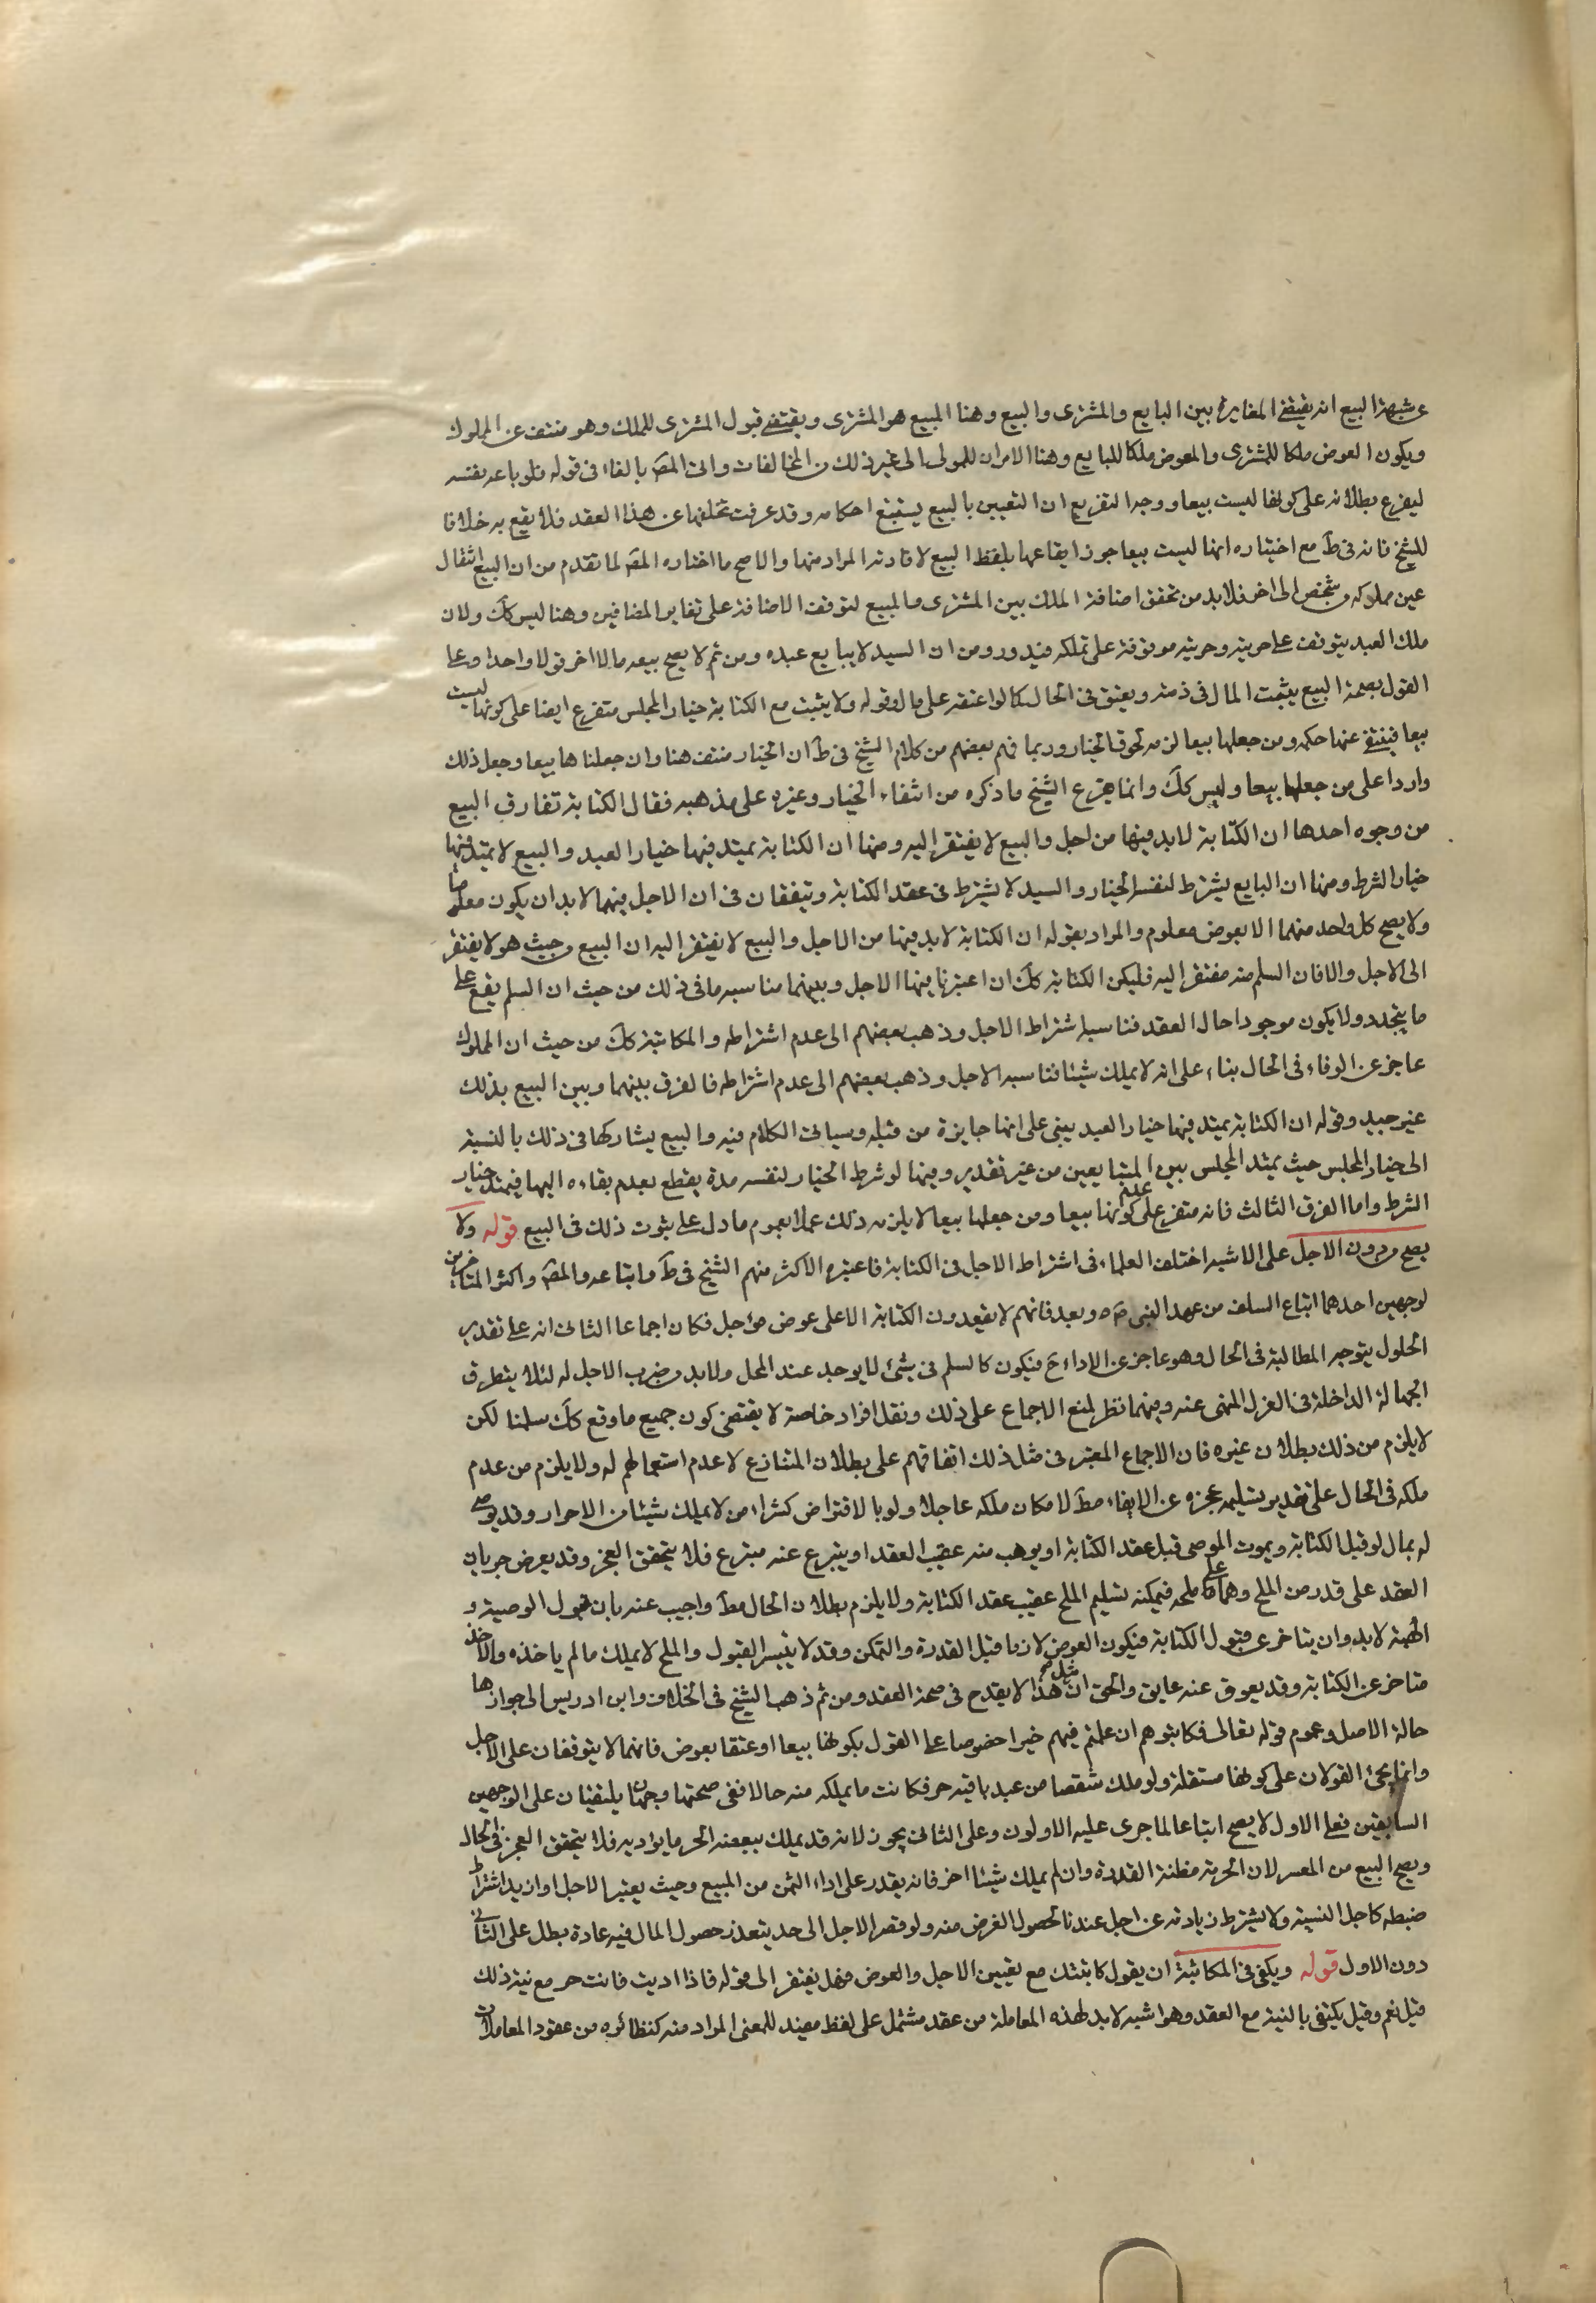 عن شبهة البيع انه يقتضي المغايرة بين البايع والمشترى والبيع وهنا المبيع هو المشترى ويقتضي قبول المشترى للملك وهو منتف عن المملوك
ويكون العوض ملكا للمشترى والمعوض ملكا للبايع وهنا الامران للمولى الى غير ذلك من المخالفات واتى المصَ بالفاء فى قوله فلو باعه نفسه
ليفرع بطلانه على كونها ليست بيعا ووجه التفريع ان التعبير بالبيع يستتبع احكامه وقد عرفت تخلفها عن هذا العقد فلا يقع به خلافا
للشيخ فانه فى طَ مع اختياره انها ليست بيعا جوز ايقاعها بلفظ البيع لافادته المراد منها والاصح ما اختاره المصَ لما تقدم من ان البيع انتقال
عين مملوكه من شخص الى اخر فلابد من تحقق اضافة الملك بين المشترى والمبيع لتوقف الاضافة على تغاير المضافين وهنا ليس ككَ ولان
ملك العبد يتوقف على حريته وحريته موقوفة على تملكه فيدور ومن ان السيد لا يبايع عبده ومن ثم لا يصح بيعه مالا اخر قولا واحدا وعلى
القول بصحة البيع يثبت المال فى ذمته ويعتق فى الحال كما لو اعتقه على مال وقوله ولا يثبت مع الكتابة خيار المجلس متفرع ايضا على كونها ليست
بيعا فينتفى عنها حكمه ومن جعلها بيعا لزمه لحوق الخيار وربما فهم بعضهم من كلام الشيخ فى طَ ان الخيار منتف هنا وان جعلناها بيعا وجعل ذلك
واردا على من جعلها بيعا وليس ككَ وانما يفرع الشيخ ما ذكره من انتفاء الخيار وغيره على مذهبه فقال الكتابة تفارق البيع
من وجوه احدها ان الكتابة لابد فيها من اجل والبيع لا يفتقر اليه ومنها ان الكتابة يمتد فيها خيار العبد والبيع لا يمتد فيها
خيار الشرط ومنها ان البايع يشترط لنفسه الخيار والسيد لا يشترط فى عقد الكتابة ويتفقان فى ان الاجل فيهما لابد ان يكون معلوما
ولا يصح كل واحد منهما الا بعوض معلوم والمراد بقوله ان الكتابة لابد فيها من الاجل والبيع لا يفتقر اليه ان البيع من حيث هو لا يفتقر
الى الاجل والا فان السلم منه مفتقر اليه فليكن الكتابة ككَ ان اعتبرنا فيها الاجل وبينهما مناسبة ما فى ذلك من حيث ان السلم يقع على
ما يتجدد ولا يكون موجودا حال العقد فناسبه اشتراط الاجل وذهب بعضهم الى عدم اشتراطه والمكاتبة ككَ من حيث ان المملوك
عاجز عن الوفاء فى الحال بناء على انه لا يملك شيئا فناسبه الاجل وذهب بعضهم الى عدم اشتراطه فالفرق بينهما وبين البيع بذلك
غير جيد وقوله ان الكتابة يمتد فيها خيار العبد يبنى على انها جايزة من قبله وسياتى الكلام فيه والبيع يشاركها فى ذلك بالنسبة
الى خيار المجلس حيث يمتد المجلس بين المتبايعين من غير تقدير وفيها لو شرط الخيار لنفسه مدة يقطع بعدم بقاءه اليها فيمتد خيار
الشرط واما الفرق الثالث فانه متفرع على عدم كونها بيعا ومن جعلها بيعا لا يلزمه ذلك عملا بعموم ما دل على ثبوت ذلك فى البيع قوله ولا
يصح من دون الاجل على الاشبه اختلف العلماء فى اشتراط الاجل فى الكتابة فاعتبره الاكثر منهم الشيخ فى طَ واتباعه والمصَ واكثر المتاخرين
لوجهين احدهما اتباع السلف من عهد النبى صَ وبعده فانهم لا يعقدون الكتابة الا على عوض مؤجل فكان اجماعا الثانى انه على تقدير
الحلول يتوجه المطالبة فى الحال وهو عاجز عن الاداء حَ فيكون كالسلم فى شئ لا يوجد عند المحل ولابد من ضرب الاجل له لئلا يتطرق
الجهالة الداخلة فى الغرر المنهى عنه وفيهما نظر لمنع الاجماع على ذلك ونقل افراد خاصة لا يقتضى كون جميع ما وقع ككَ سلمنا لكن
لا يلزم من ذلك بطلان غيره فان الاجماع المعتبر فى مثل ذلك اتفاقهم على بطلان المتنازع لا عدم استعمالهم له ولا يلزم من عدم
ملكه فى الحال على تقدير تسليمه عجزه عن الايفاء مطَ لامكان ملكه عاجلا ولو بالاقتراض كشراء من لا يملك شيئا من الاحرار وقد يوصى
له بمال لو قبل الكتابة ويموت الموصى قبل عقد الكتابة او يوهب منه عقيب العقد او يتبرع عنه متبرع فلا يتحقق العجز وقد يعرض جريان
العقد على قدر من الملح وهما على مملحه فيمكنه تسليم الملح عقيب عقد الكتابة ولا يلزم بطلان الحال مطَ واجيب عنه بان قبول الوصية و
الهبة لابد وان يتاخر عن قبول الكتابة فيكون العوض لازما قبل القدرة والتمكن وقد لا يتيسر القبول والملح لا يملك مالم ياخذه والاخذ
متاخر عن الكتابة وقد يعوق عنه عايق والحق ان مثل هذا لا يقدح فى صحة العقد ومن ثم ذهب الشيخ فى الخلاف وابن ادريس الى جوازها
حالة الاصل وعموم قوله تعالى فكاتبوهم ان علمتم فيهم خيرا خصوصا على القول بكونها بيعا او عتقا بعوض فانهما لا يتوقفان على الاجل
وانما يجئ القولان على كونها مستقلة ولو ملك شقصا من عبد باقيه حر فكانت ما يملكه منه حالا ففى صحتها وجهان يلتفتان على الوجهين
السابقين فعلى الاول لا يصح اتباعا لما جرى عليه الاولون وعلى الثانى يجوز لانه قد يملك ببعضه الحر ما يؤديه فلا يتحقق العجز فى الحال
ويصح البيع من المعسر لان الحرية مظنة القدرة وان لم يملك شيئا اخر فانه يقدر على اداء الثمن من المبيع وحيث يعتبر الاجل او ازيد اشتراط
ضبطه كاجل النسيئة ولا يشترط زيادته عن اجل عندنا لحصول الغرض منه ولو قصر الاجل الى حد يتعذر حصول المال فيه عادة بطل على الثانى
دون الاول قوله ويكفى فى المكاتبة ان يقول كاتبتك مع تعيين الاجل والعوض وهل يفتقر الى قوله فاذا اديت فانت حر مع نية ذلك
قيل نعم وقيل يكتفى بالنية مع العقد وهو اشبه لابد لهذه المعاملة من عقد مشتمل على لفظ مفيد للمعنى المراد منه كنظائره من عقود المعاملات